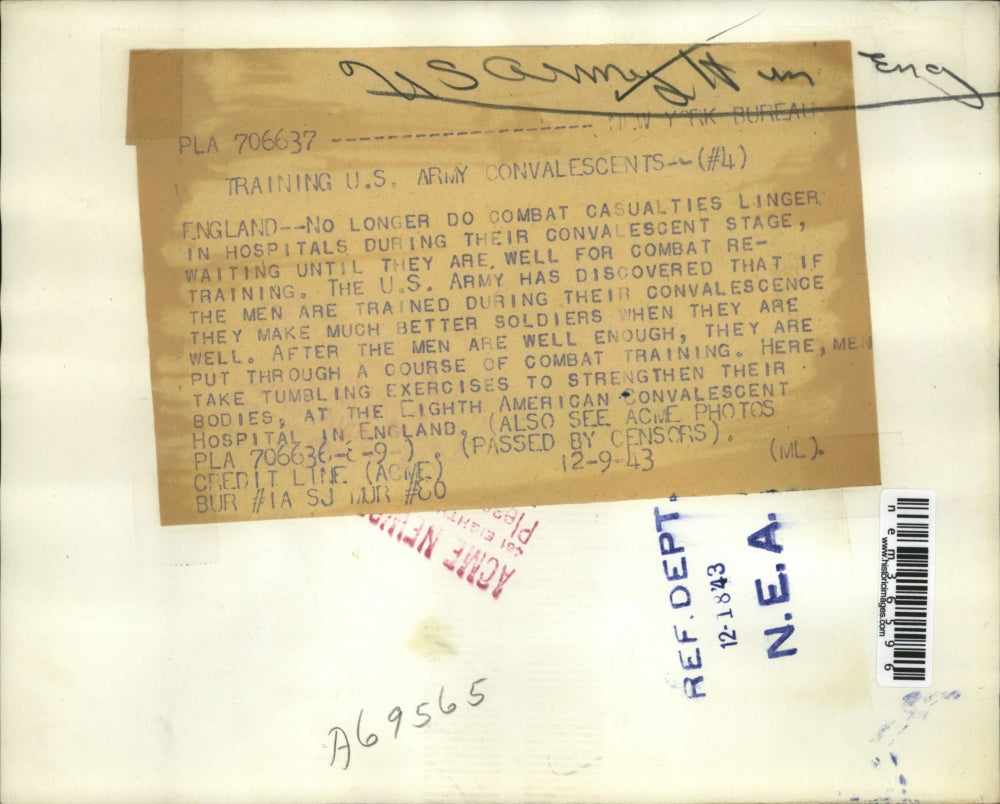 US Army in Eng
PLA 706637 -------------------------- NEW YORK BUREAU
TRAINING U.S. ARMY CONVALESCENTS--(#4)
ENGLAND--NO LONGER DO COMBAT CASUALTIES LINGER
IN HOSPITALS DURING THEIR CONVALESCENT STAGE,
WAITING UNTIL THEY ARE WELL FOR COMBAT RE-
TRAINING. THE U.S. ARMY HAS DISCOVERED THAT IF
THE MEN ARE TRAINED DURING THEIR CONVALESCENCE
THEY MAKE MUCH BETTER SOLDIERS WHEN THEY ARE
WELL. AFTER THE MEN ARE WELL ENOUGH, THEY ARE
PUT THROUGH A COURSE OF COMBAT TRAINING. HERE, MEN
TAKE TUMBLING EXERCISES TO STRENGTHEN THEIR
BODIES, AT THE EIGHTH AMERICAN CONVALESCENT
HOSPITAL IN ENGLAND. (ALSO SEE ACME PHOTOS
PLA 706636-8-9-). (PASSED BY CENSORS).
CREDIT LINE (ACME) 12-9-43 (ML).
BUR #1A SJ #60
ACME
461 EIGHTH
REF. DEPT.
12-18 43
N.E.A.
nem36596
www.historicimages.com
A69565